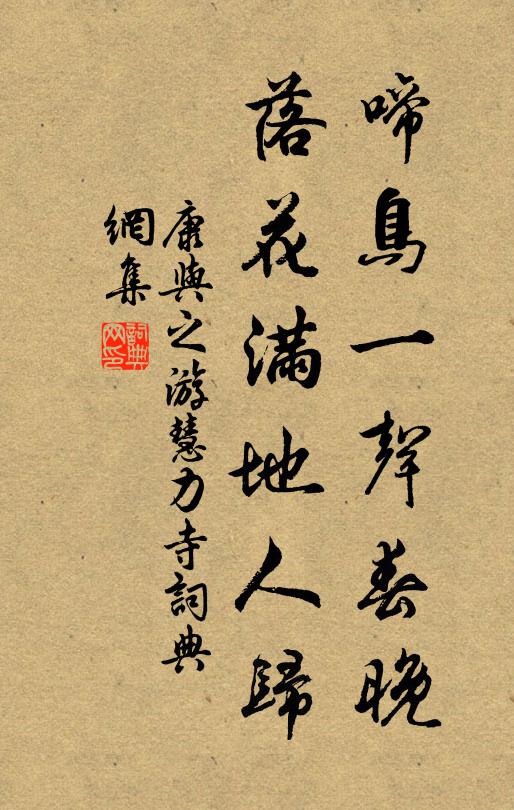 啼鳥一聲春晚
落花滿地人歸
康與之游慧力寺詞典
網集
詞典
网印